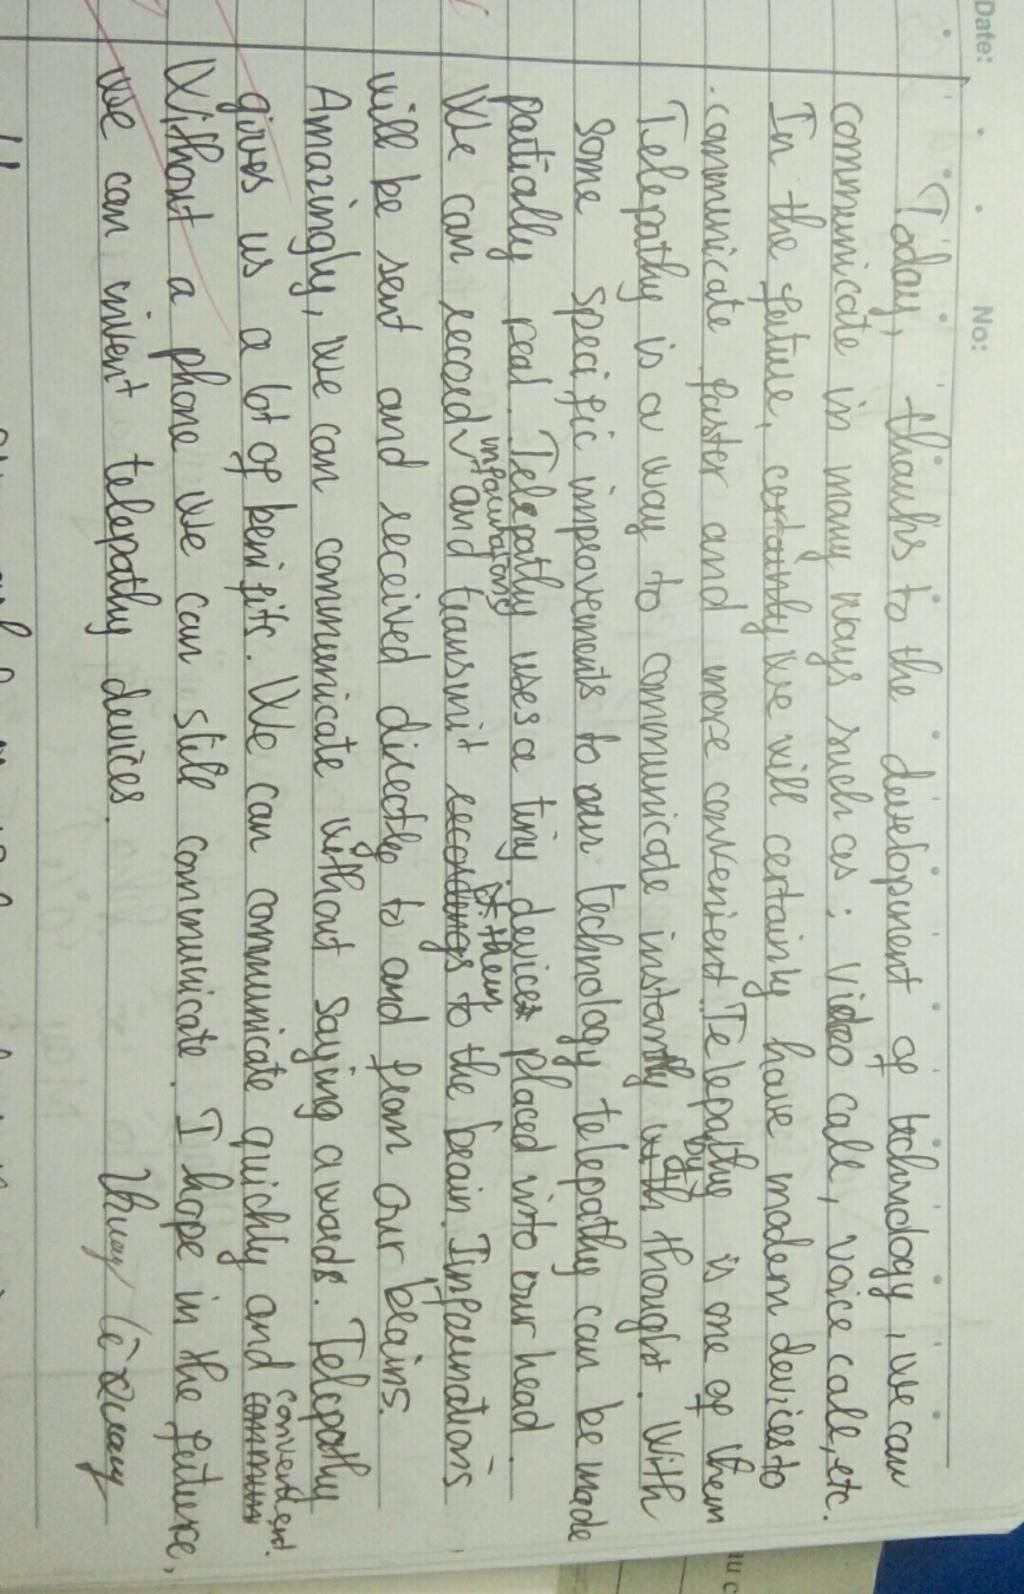 Date: No:
Today, thanks to the development of technology, we can
communicate in many ways such as: video call, voice call, etc.
In the future, certainly we will certainly have modern devices to
communicate faster and more convenient. Telepathy is one of them
Telepathy is a way to communicate instantly by thought. With
some specific improvements to our technology telepathy can be made
partially real. Telepathy uses a tiny device placed into our head.
We can record informations and transmit them to the brain. Informations
will be sent and received directly to and from our brains.
Amazingly, we can communicate without saying a words. Telepathy
gives us a lot of benifits. We can communicate quickly and convenient.
Without a phone we can still communicate. I hope in the future,
we can invent telepathy devices.